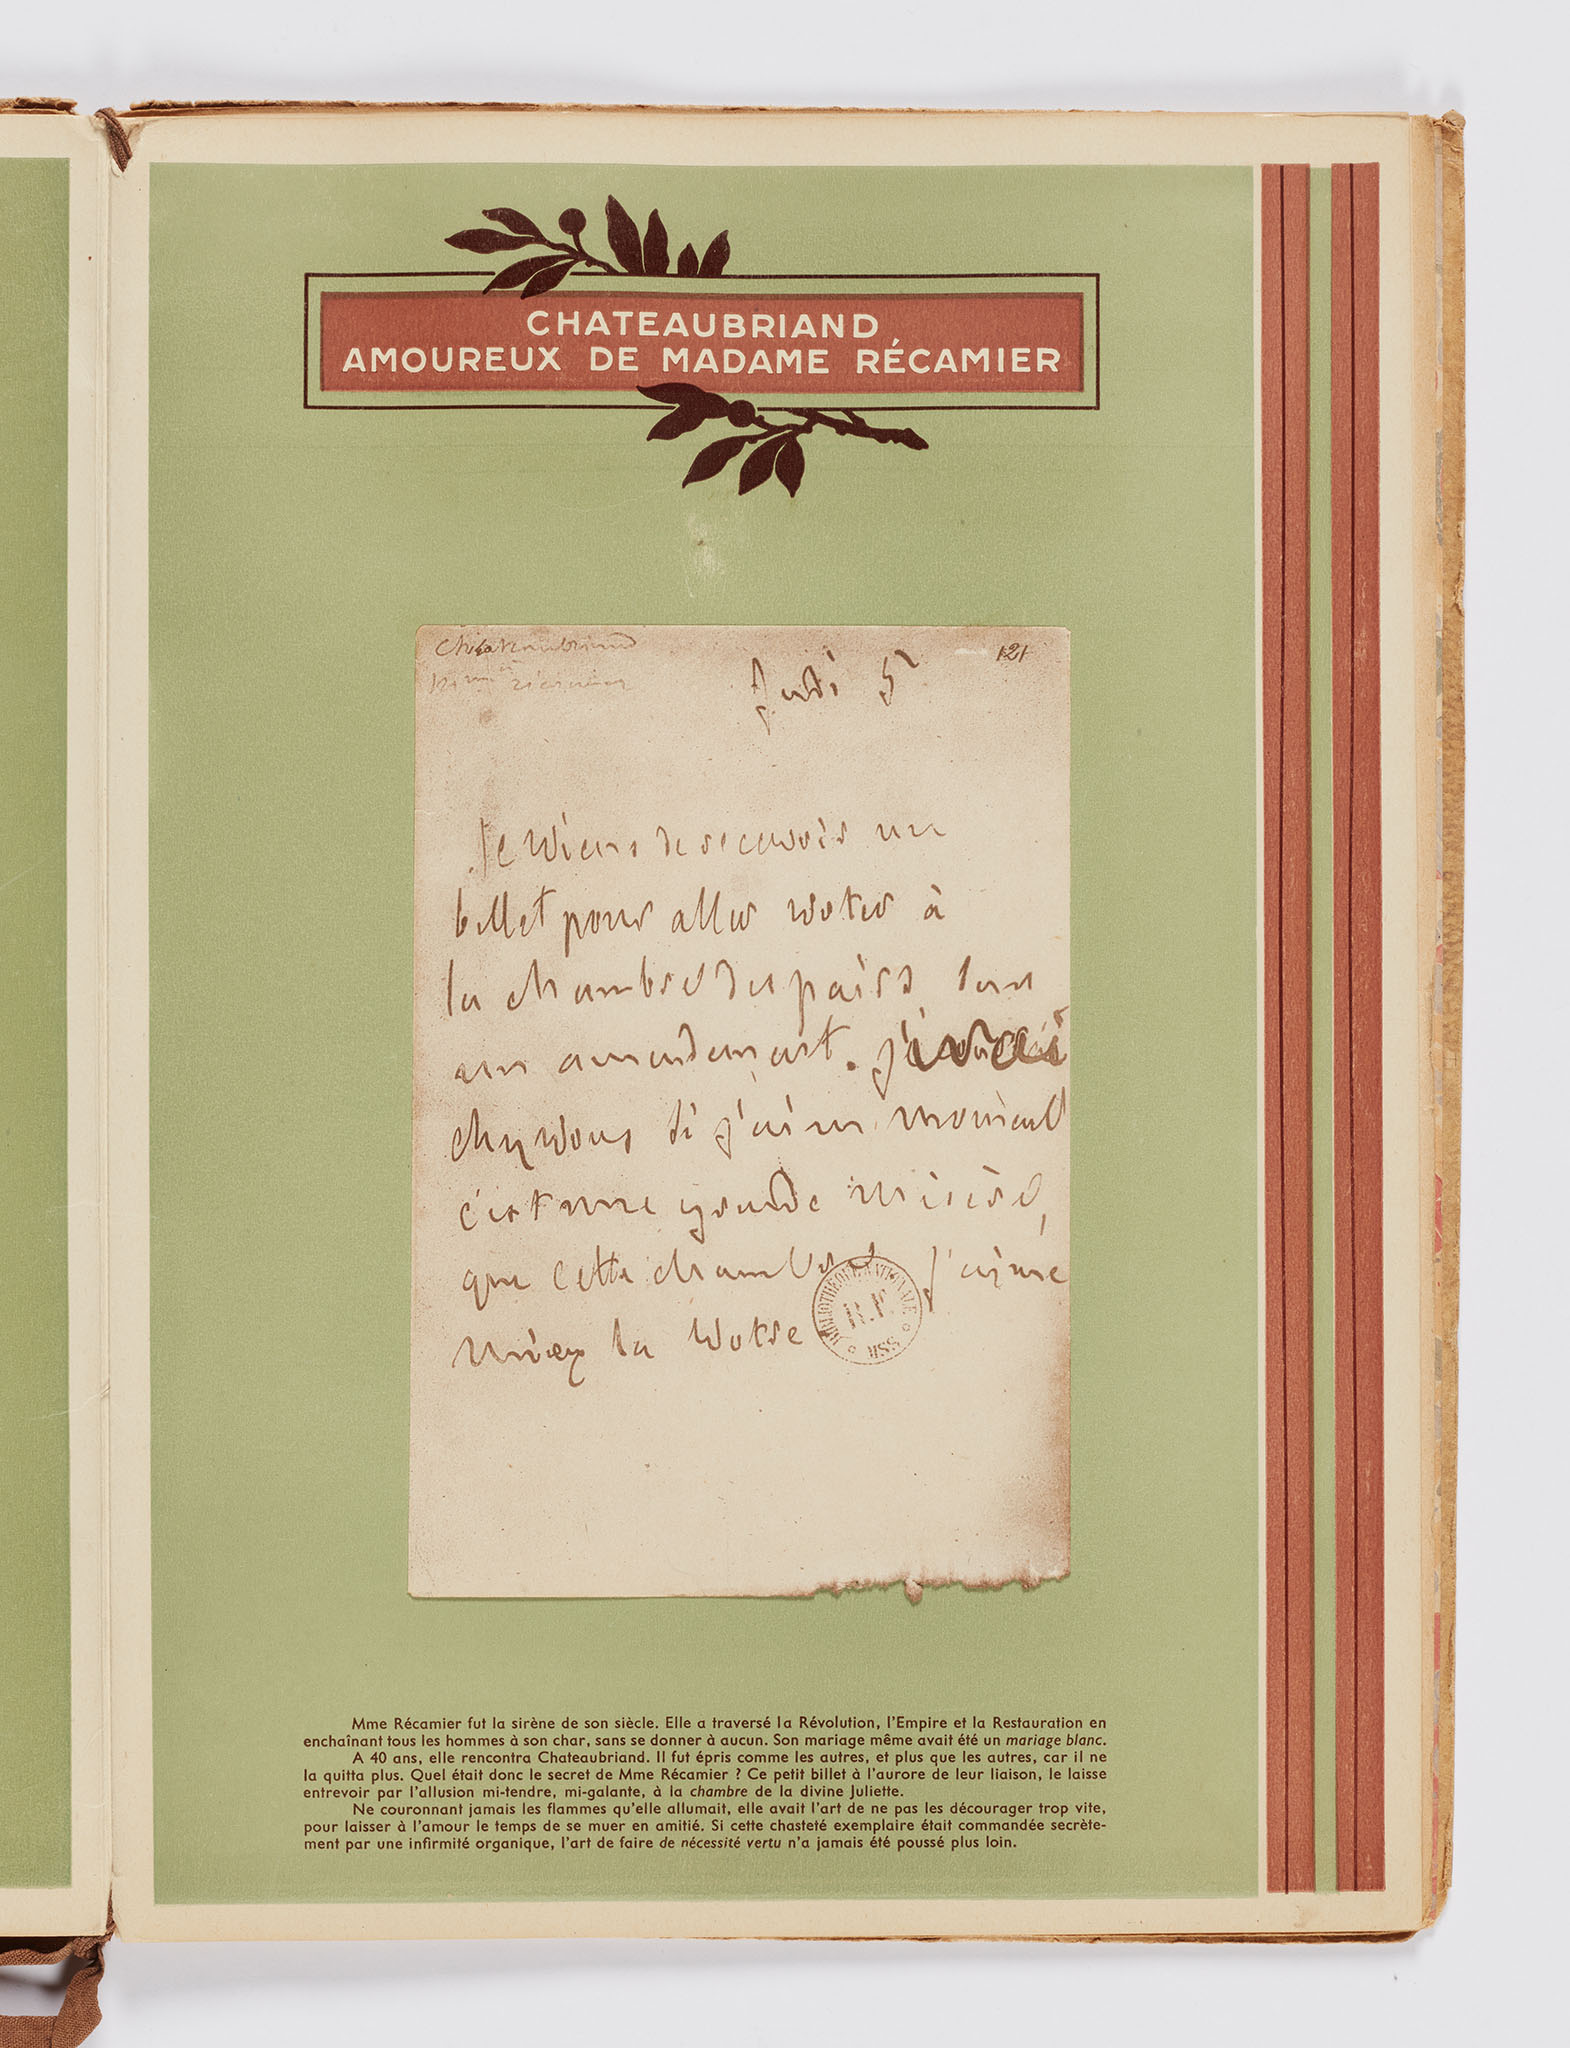 CHATEAUBRIAND
AMOUREUX DE MADAME RÉCAMIER
Chateaubriand
à
121
Jeudi 5
Je viens de recevoir un
billet pour aller voter à
la chambre des pairs sur
un amendement. J'irai
chez vous si j'ai un moment
c'est une grande misère,
que cette chambre J'aime
mieux la votre
BIBLIOTHÈQUE NATIONALE
R.F.
MSS
Mme Récamier fut la sirène de son siècle. Elle a traversé la Révolution, l'Empire et la Restauration en
enchaînant tous les hommes à son char, sans se donner à aucun. Son mariage même avait été un mariage blanc.
A 40 ans, elle rencontra Chateaubriand. Il fut épris comme les autres, et plus que les autres, car il ne
la quitta plus. Quel était donc le secret de Mme Récamier ? Ce petit billet à l'aurore de leur liaison, le laisse
entrevoir par l'allusion mi-tendre, mi-galante, à la chambre de la divine Juliette.
Ne couronnant jamais les flammes qu'elle allumait, elle avait l'art de ne pas les décourager trop vite,
pour laisser à l'amour le temps de se muer en amitié. Si cette chasteté exemplaire était commandée secrète-
ment par une infirmité organique, l'art de faire de nécessité vertu n'a jamais été poussé plus loin.